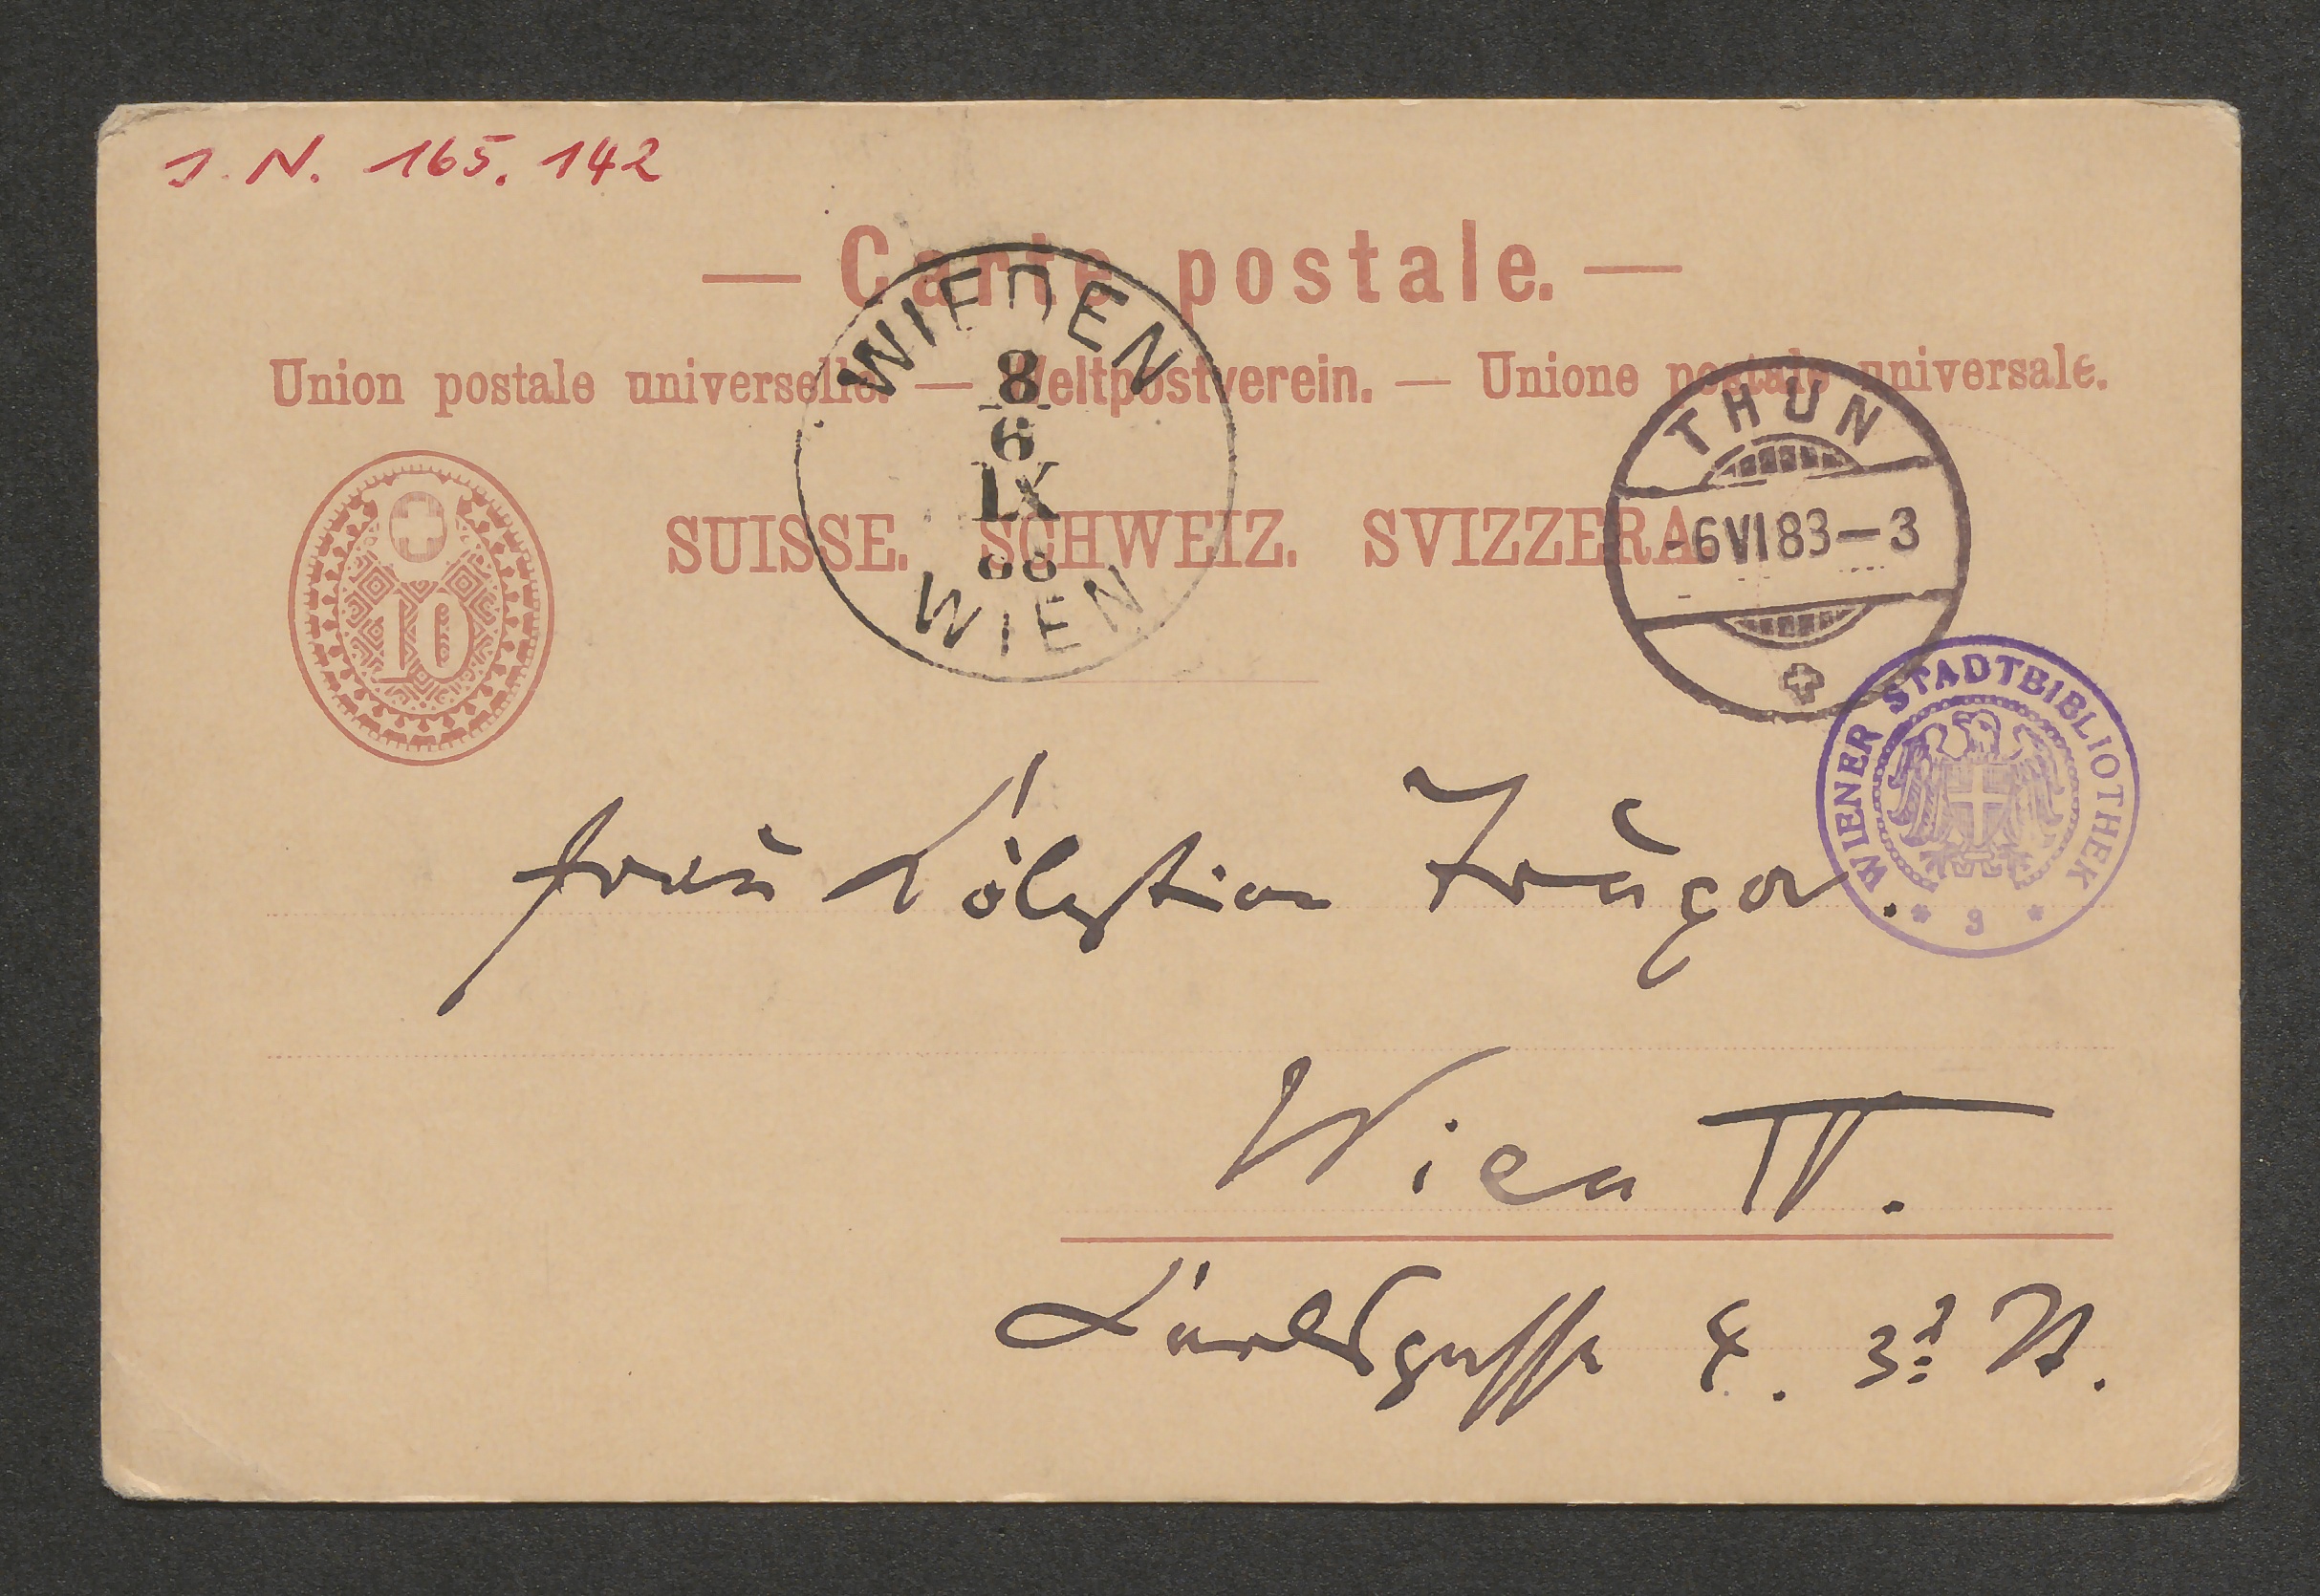 J. N. 165.142
— Carte postale. —
Union postale universelle. — Weltpostverein. — Unione postale universale.
SUISSE. SCHWEIZ. SVIZZERA.
10
WIEDEN
8
6
IX
88
WIEN
THUN
-6 VI 88-3
WIENER STADTBIBLIOTHEK
* 9 *
Frau Cölestine Truxa.
Wien IV.
Karlsgasse 4.